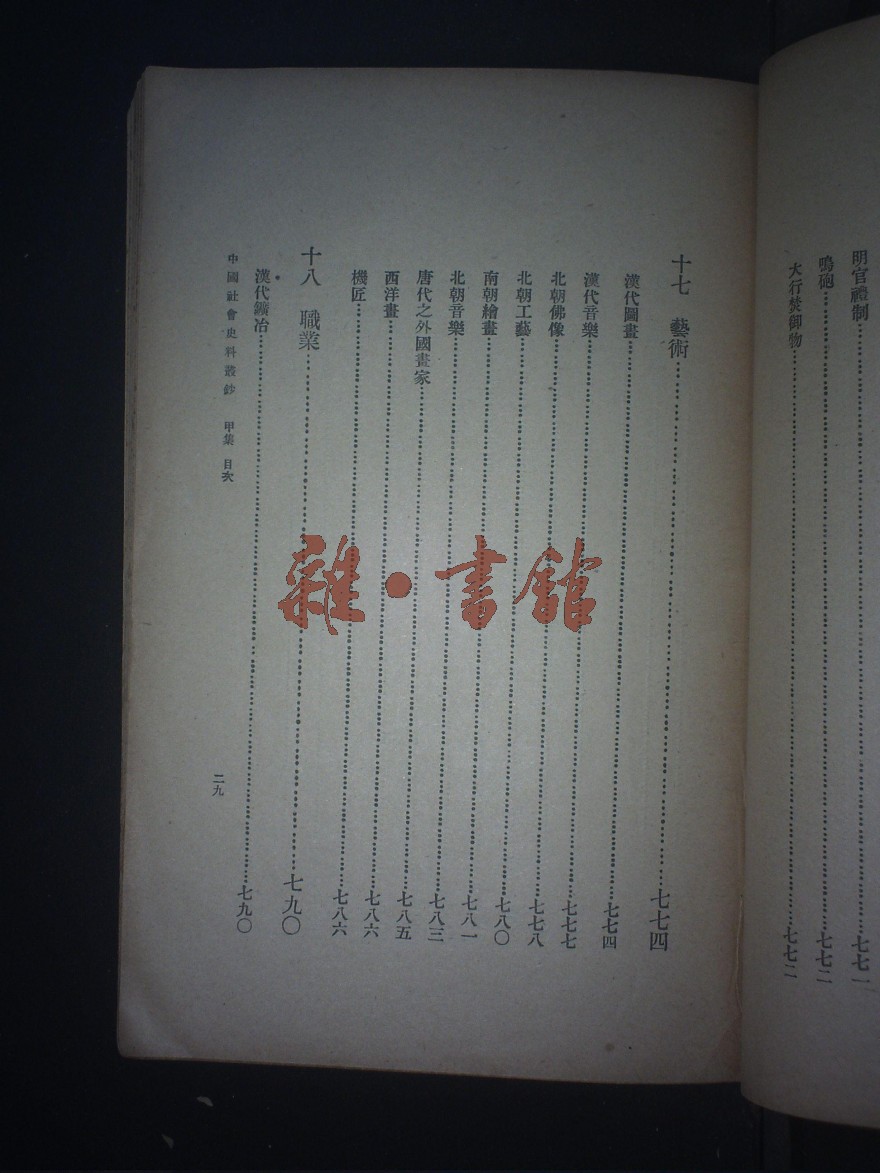 明官禮制……七七一
鳴砲……七七二
大行焚御物……七七二
十七 藝術……七七四
漢代圖畫……七七四
漢代音樂……七七七
北朝佛像……七七八
北朝工藝……七八〇
南朝繪畫……七八一
北朝音樂……七八三
唐代之外國畫家……七八五
西洋畫……七八六
機匠……七八六
十八 職業……七九〇
漢代鑛冶……七九〇
中國社會史料叢鈔 甲集 目次
二九
雜·書館